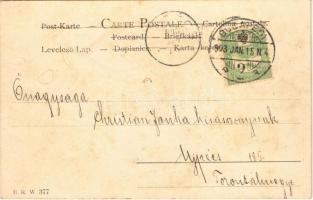 Post-Karte — CARTE POSTALE — Cartolina
Postcard — Briefkaart
Levelező-Lap. — Dopisnice. — Karta
903 JAN 15
Őnagysága
Christian Janka kisasszonynak
Ujpécs
Torontálmegye
B R W 377